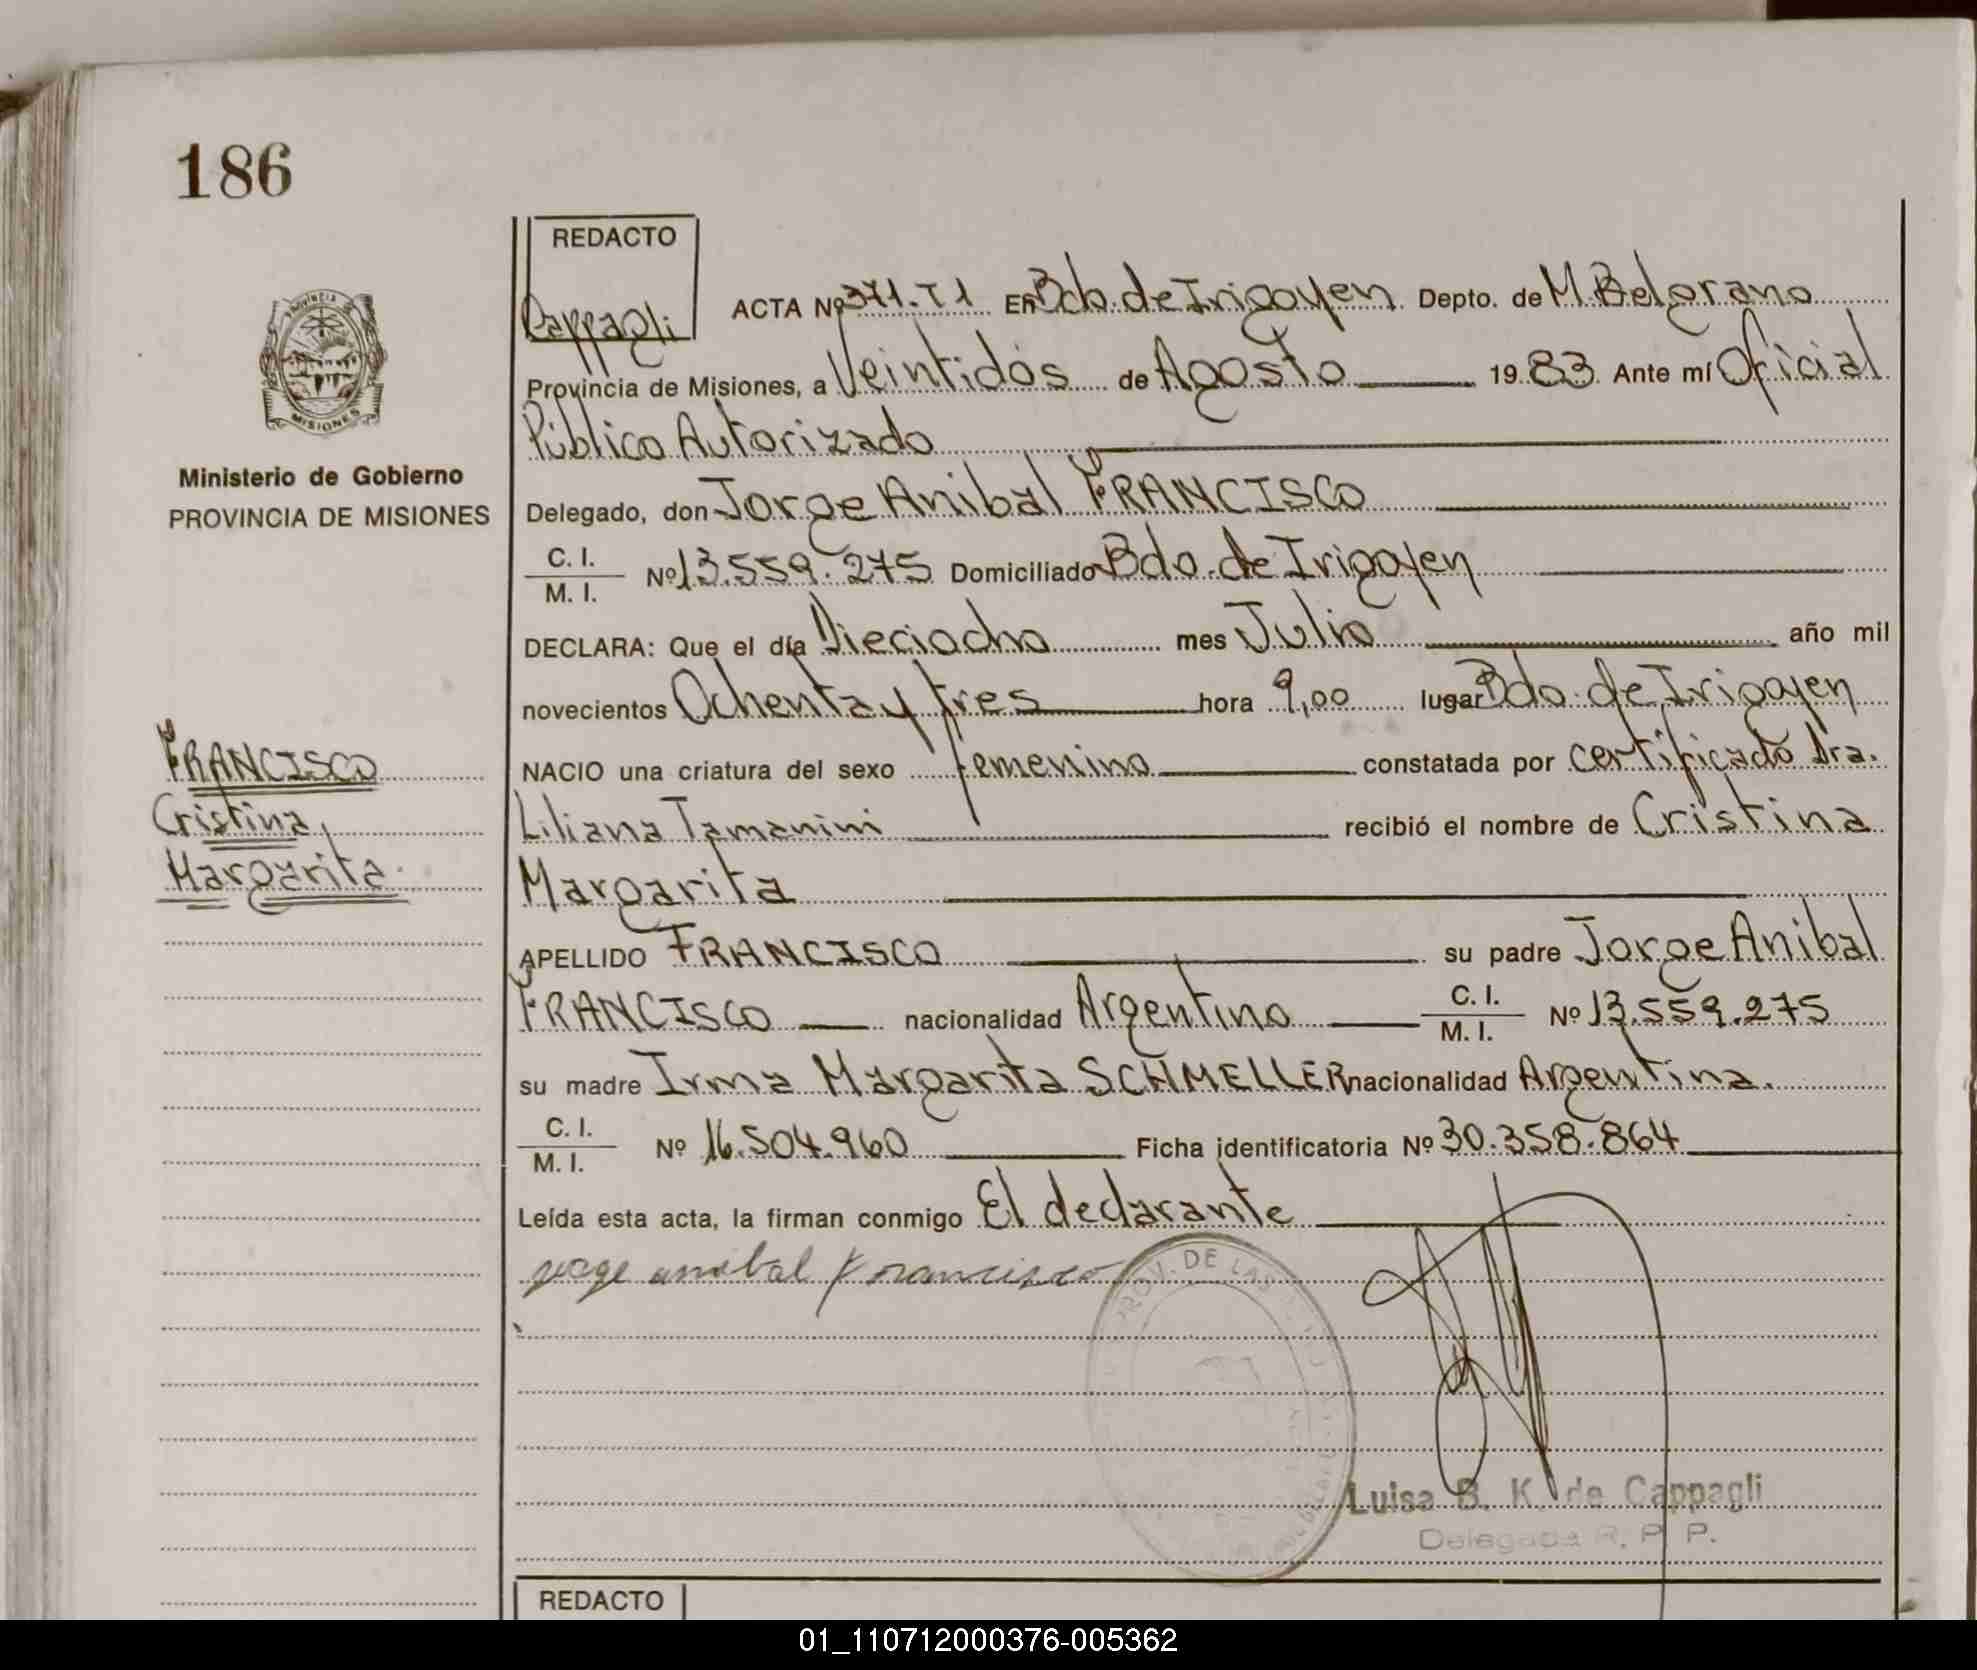 186
REDACTO
Cappagli
ACTA Nº 371.T1 En Bdo. de Irigoyen Depto. de M. Belgrano
Provincia de Misiones, a Veintidós de Agosto 1983 Ante mí Oficial
Público Autorizado
Delegado, don Jorge Anibal FRANCISCO
C. I.
M. I. Nº 13.559.275 Domiciliado Bdo. de Irigoyen
DECLARA: Que el día Dieciocho mes Julio año mil
novecientos Ochenta y tres hora 9,00 lugar Bdo. de Irigoyen
NACIO una criatura del sexo femenino constatada por certificado Dra.
Liliana Tamanini recibió el nombre de Cristina
Margarita
APELLIDO FRANCISCO su padre Jorge Anibal
FRANCISCO nacionalidad Argentino C. I.
M. I. Nº 13.559.275
su madre Irma Margarita SCHMELLER nacionalidad Argentina.
C. I.
M. I. Nº 16.504.960 Ficha identificatoria Nº 30.358.864
Leída esta acta, la firman conmigo El declarante
jorge anibal francisco
PROV. DE LAS
Luisa B. K. de Cappagli
Delegada R. P. P.
REDACTO
PROVINCIA
MISIONES
Ministerio de Gobierno
PROVINCIA DE MISIONES
FRANCISCO
Cristina
Margarita.
01_110712000376-005362